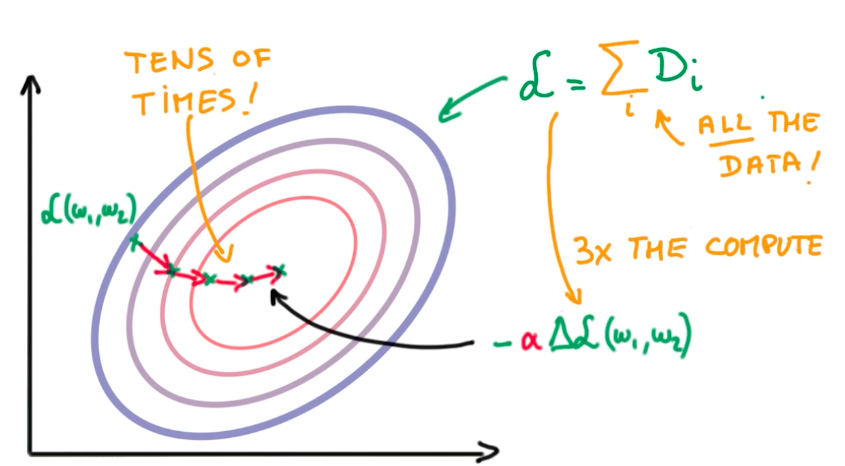 TENS OF
TIMES!
ℒ = ∑ᵢ Dᵢ
ALL THE
DATA!
ℒ(ω₁,ω₂)
3x THE COMPUTE
-α Δℒ(ω₁,ω₂)